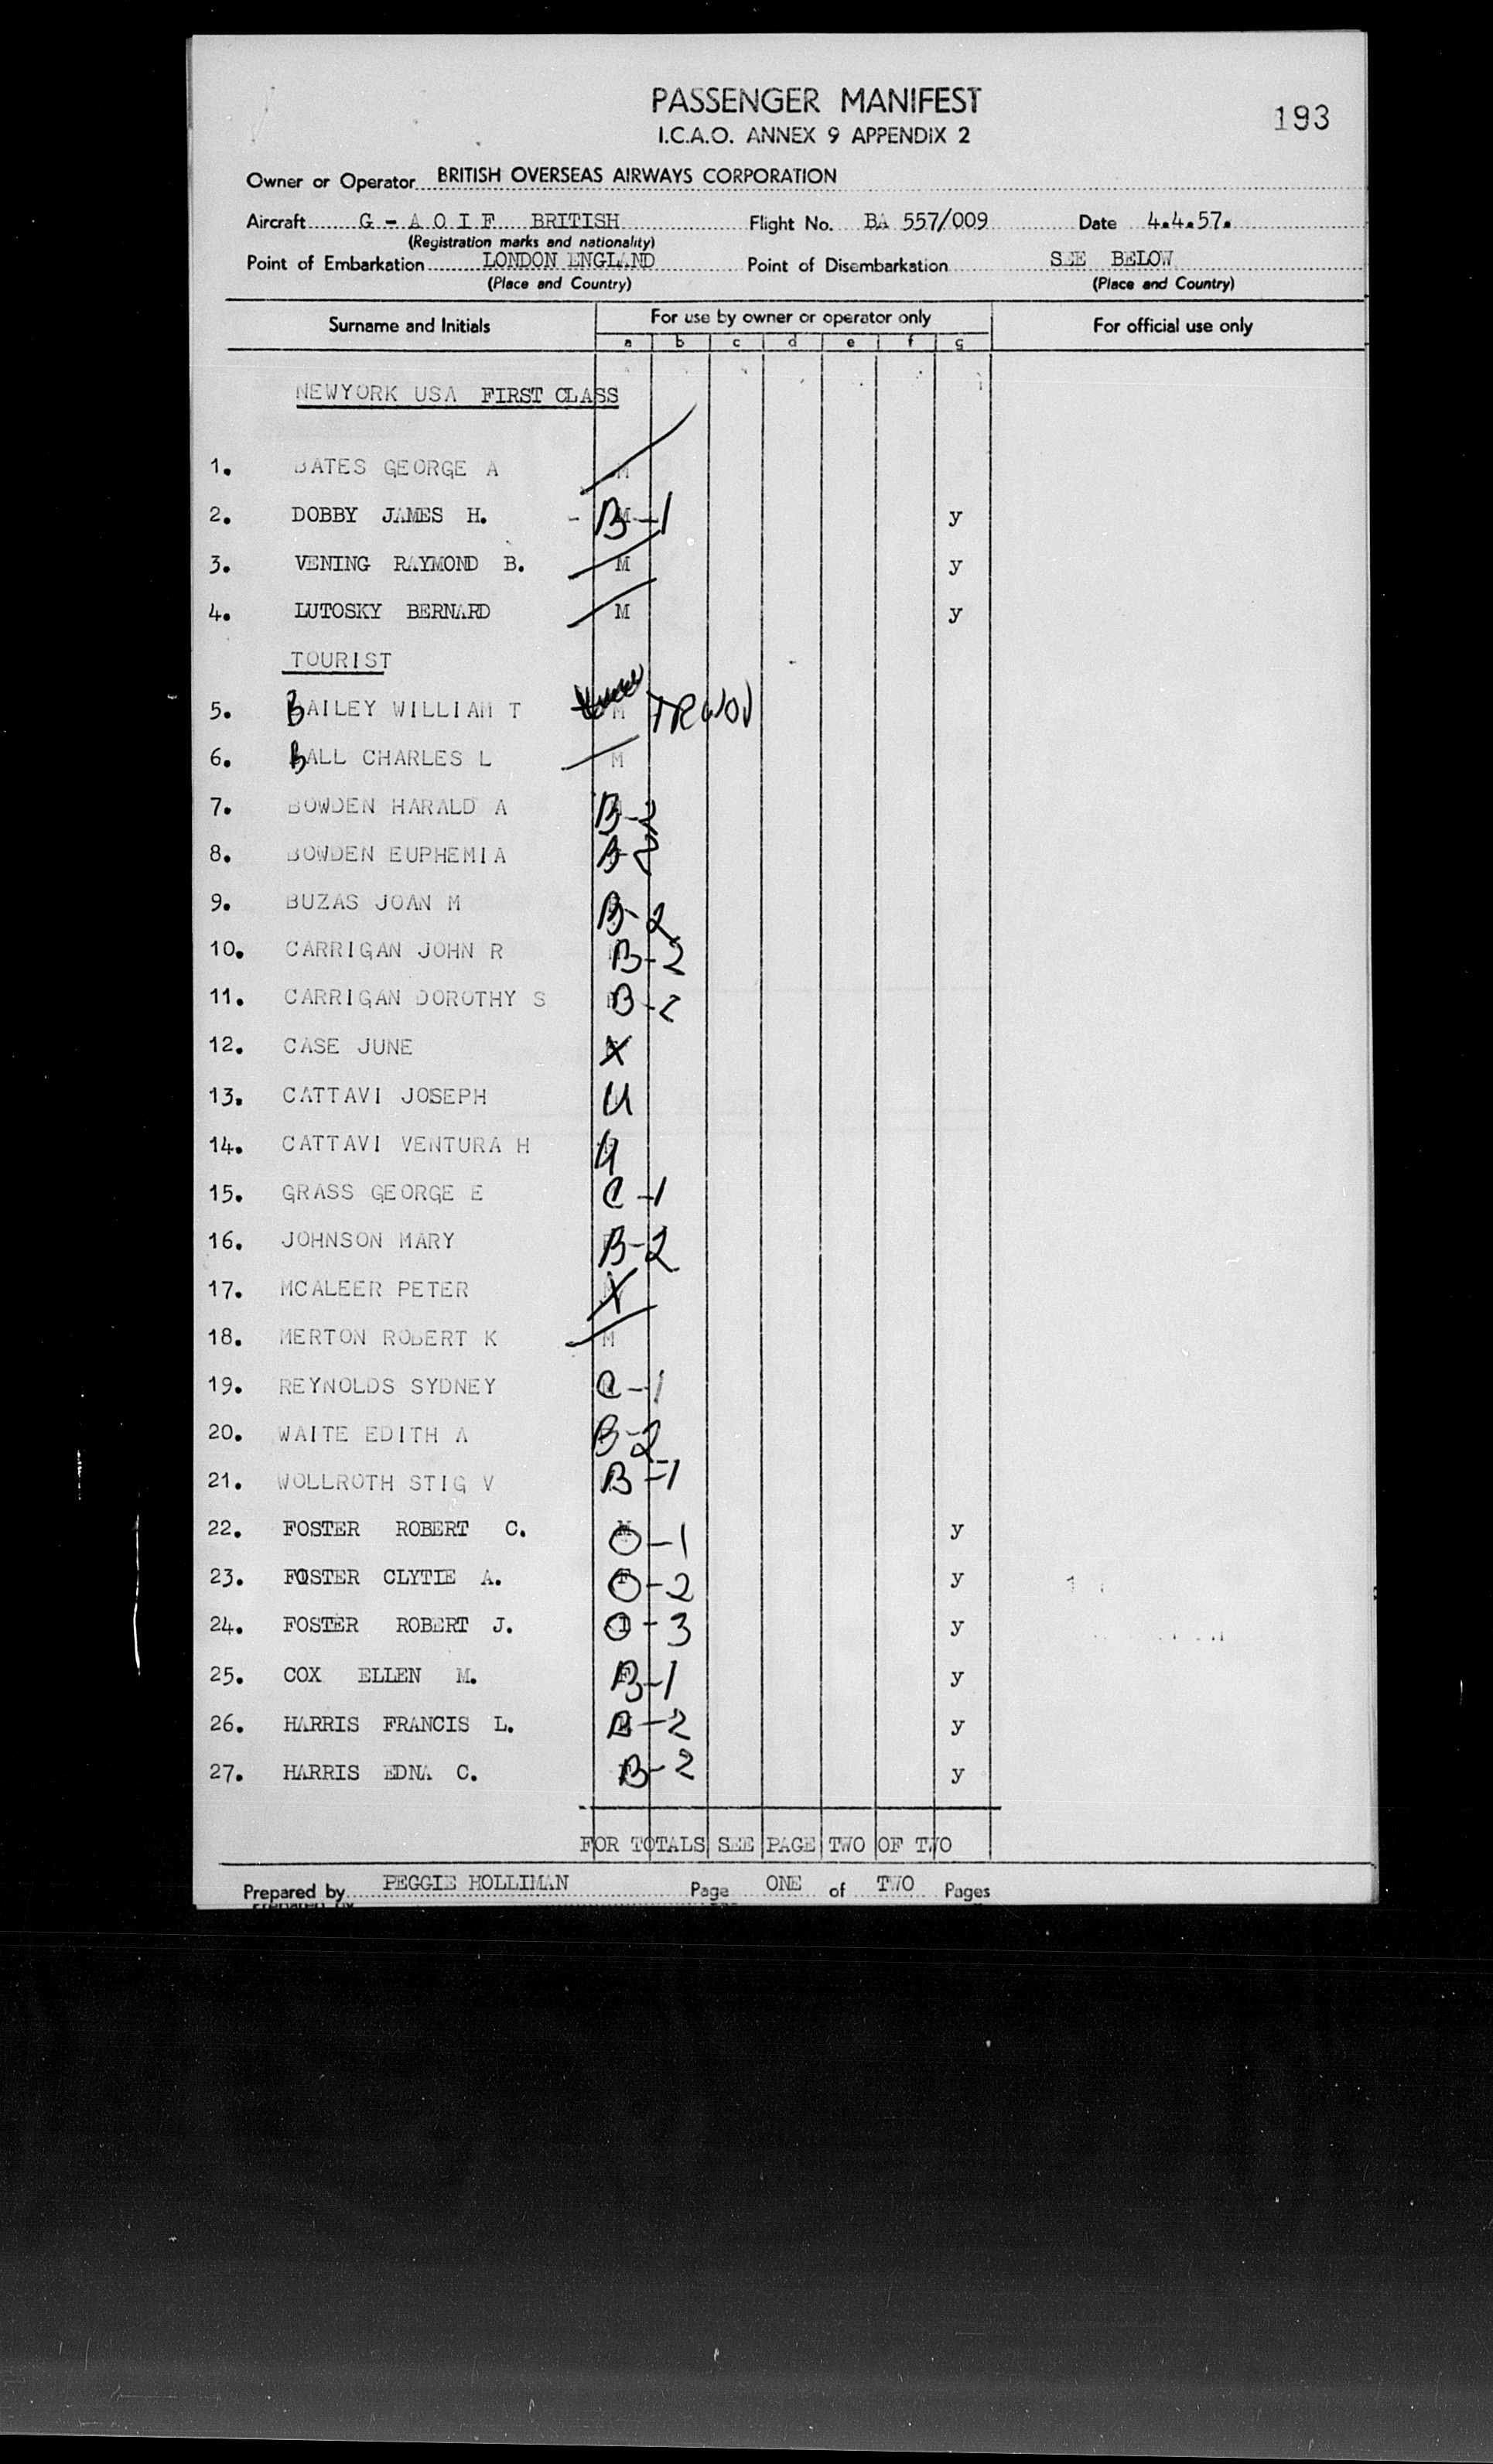 PASSENGER MANIFEST
193
I.C.A.O. ANNEX 9 APPENDIX 2
Owner or Operator BRITISH OVERSEAS AIRWAYS CORPORATION
Aircraft G - A O I F BRITISH Flight No. BA 557/009 Date 4.4.57.
(Registration marks and nationality)
Point of Embarkation LONDON ENGLAND Point of Disembarkation SEE BELOW
(Place and Country) (Place and Country)
Surname and Initials For use by owner or operator only For official use only
a b c d e f g
NEWYORK USA FIRST CLASS
1. BATES GEORGE A M
2. DOBBY JAMES H. B-1 y
3. VENING RAYMOND B. M y
4. LUTOSKY BERNARD M y
TOURIST
5. BAILEY WILLIAM T M TRWOV
6. BALL CHARLES L M
7. BOWDEN HARALD A B-2
8. BOWDEN EUPHEMIA B-2
9. BUZAS JOAN M B-2
10. CARRIGAN JOHN R B-2
11. CARRIGAN DOROTHY S B-2
12. CASE JUNE X
13. CATTAVI JOSEPH U
14. CATTAVI VENTURA H U
15. GRASS GEORGE E C-1
16. JOHNSON MARY B-2
17. MCALEER PETER X
18. MERTON ROBERT K M
19. REYNOLDS SYDNEY C-1
20. WAITE EDITH A B-2
21. WOLLROTH STIG V B-1
22. FOSTER ROBERT C. O-1 y
23. FOSTER CLYTIE A. O-2 y
24. FOSTER ROBERT J. O-3 y
25. COX ELLEN M. B-1 y
26. HARRIS FRANCIS L. B-2 y
27. HARRIS EDNA C. B-2 y
FOR TOTALS SEE PAGE TWO OF TWO
Prepared by PEGGIE HOLLIMAN Page ONE of TWO Pages